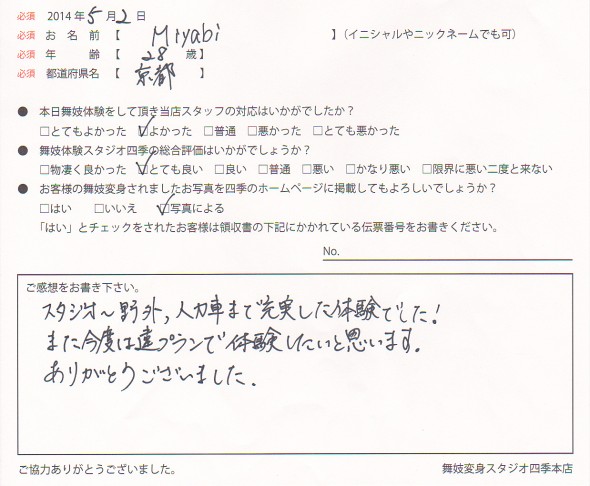 必須 2014年5月2日
必須 お名前【 Miyabi 】(イニシャルやニックネームでも可)
必須 年齢【 28 歳】
必須 都道府県名【 京都 】
● 本日舞妓体験をして頂き当店スタッフの対応はいかがでしたか?
□とてもよかった ☑よかった □普通 □悪かった □とても悪かった
● 舞妓体験スタジオ四季の総合評価はいかがでしょうか?
□物凄く良かった ☑とても良い □良い □普通 □悪い □かなり悪い □限界に悪い二度と来ない
● お客様の舞妓変身されましたお写真を四季のホームページに掲載してもよろしいでしょうか?
□はい □いいえ ☑写真による
「はい」とチェックをされたお客様は領収書の下記にかかれている伝票番号をお書きください。
No.
ご感想をお書き下さい。
スタジオ〜野外,人力車まで充実した体験でした!
また今度は違プランで体験したいと思います.
ありがとうございました.
ご協力ありがとうございました。
舞妓変身スタジオ四季本店